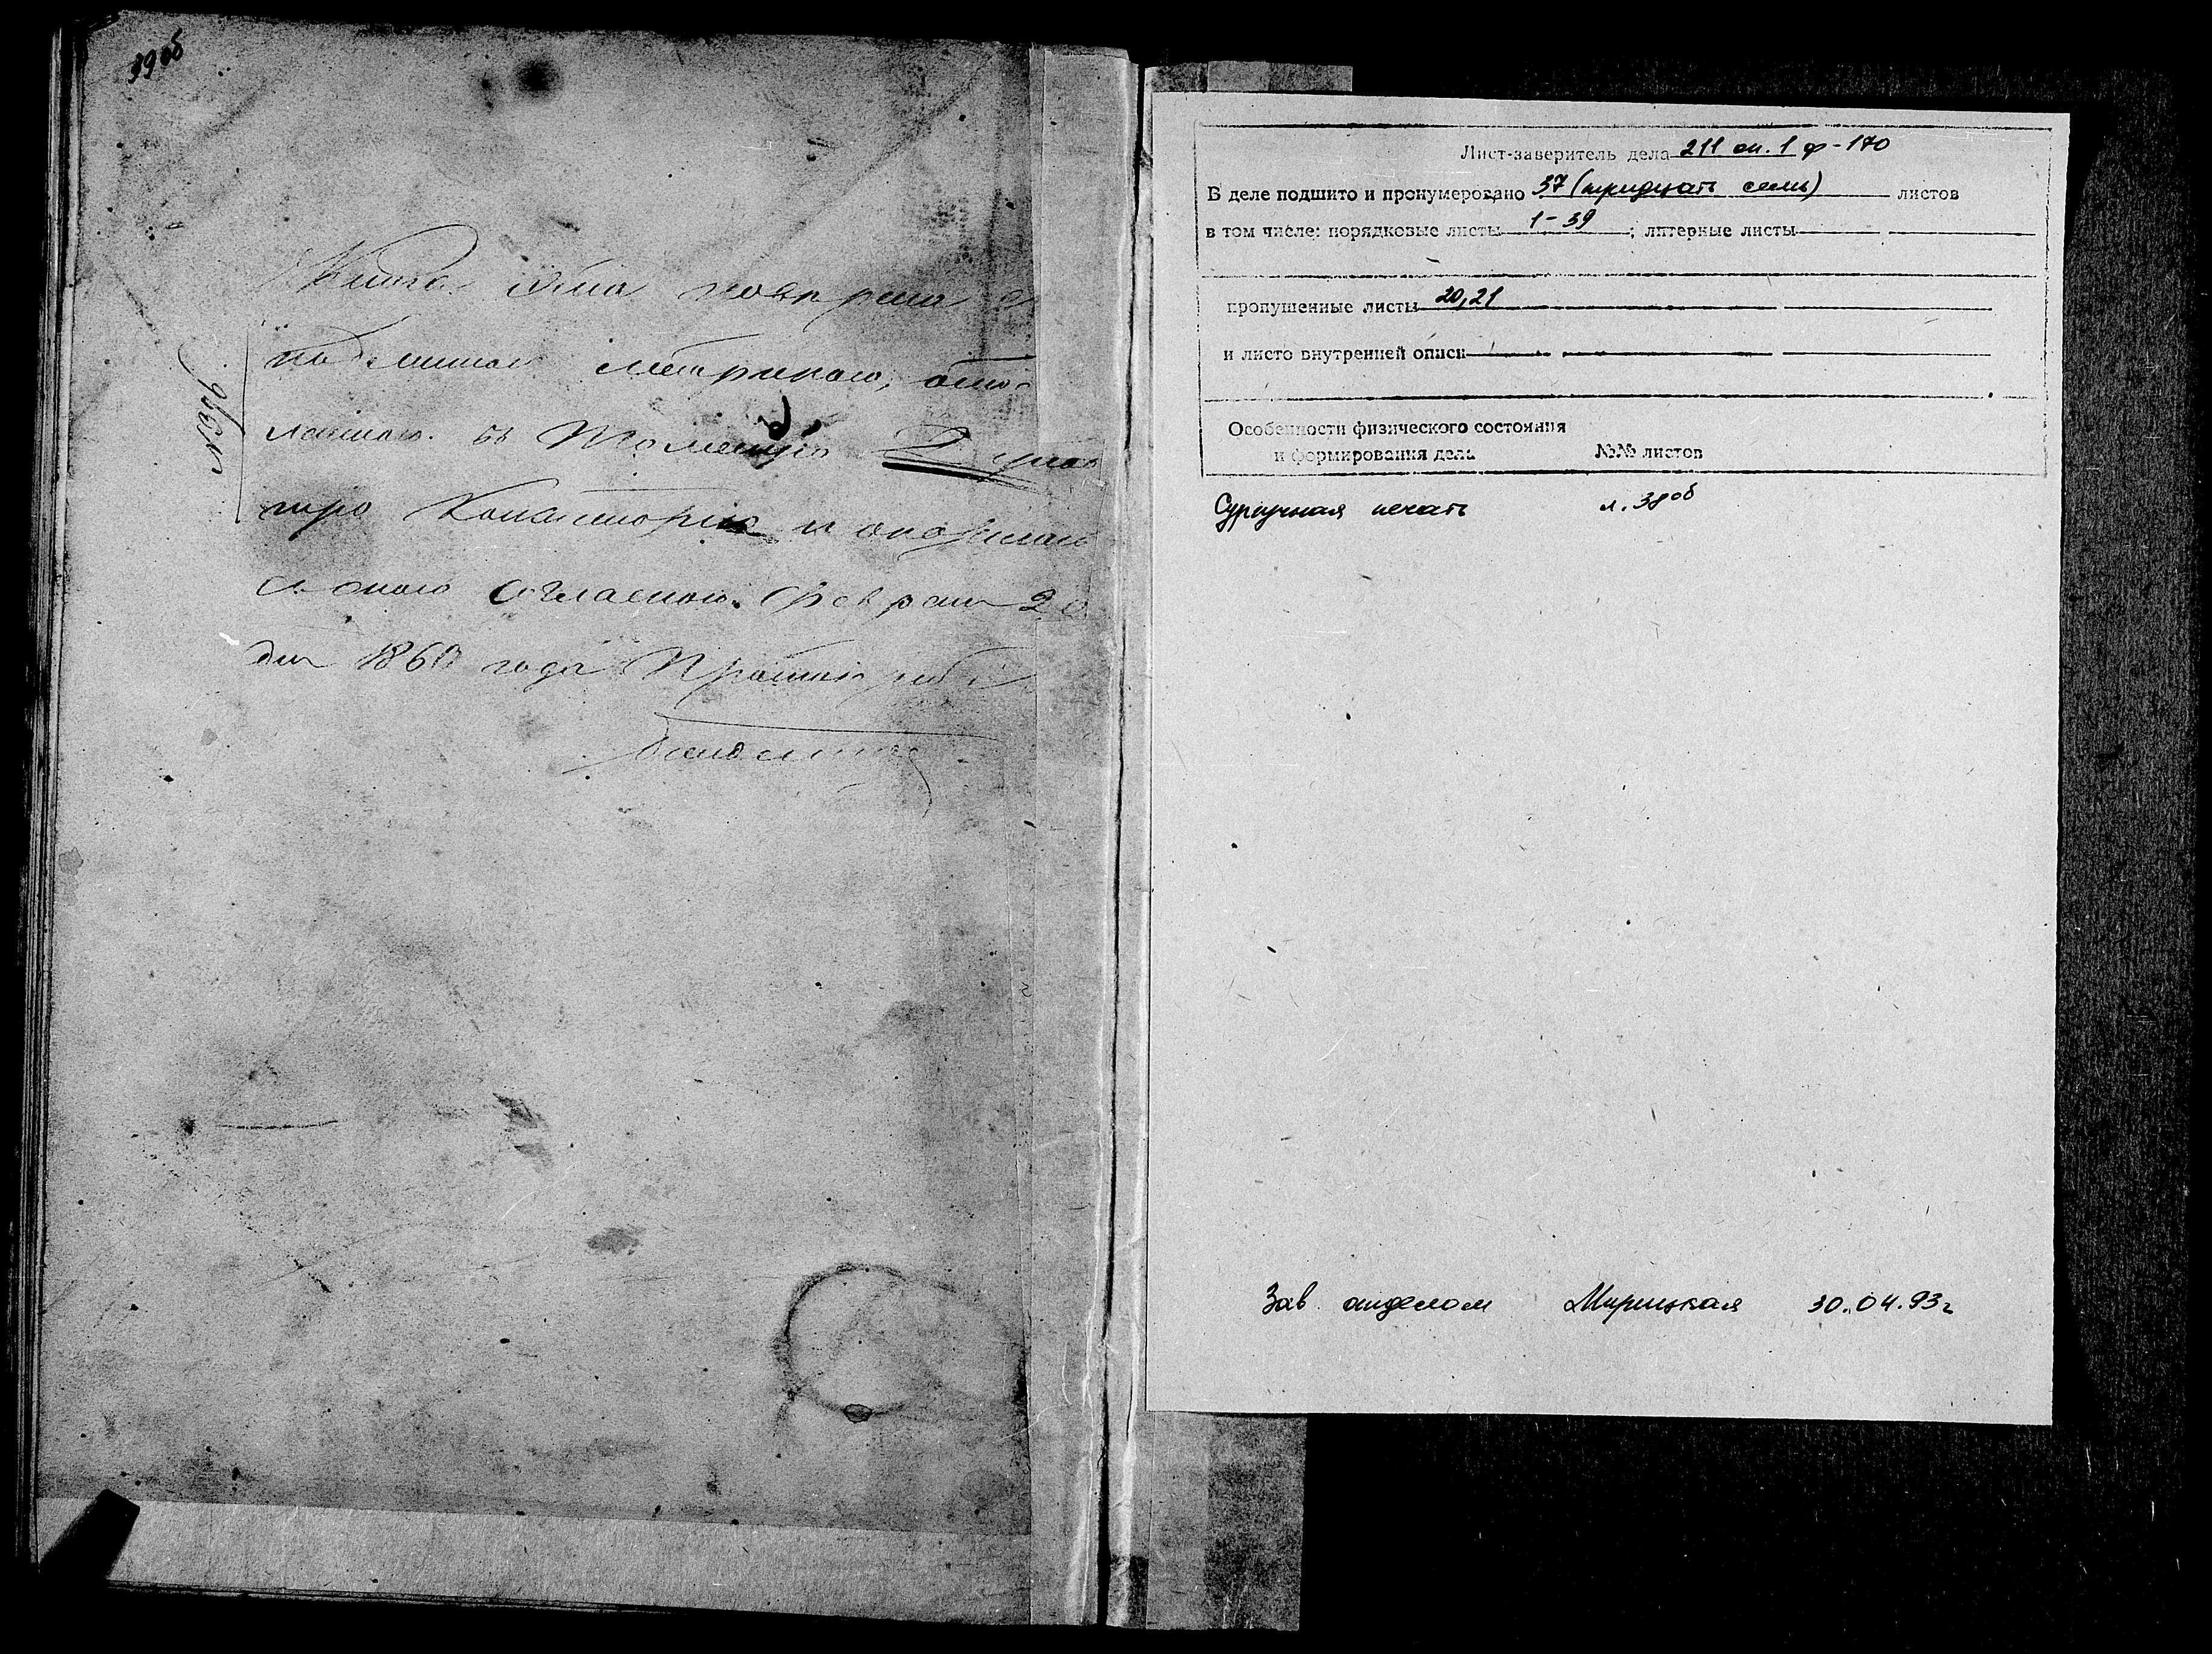 39 об
Книга сiя поверена с
подлинною метрикою, отос
ланною въ
Консисторiю и оказалась
съ оною согласною. Февраля 20
дня 1860 года
Лист-заверитель дела 211 оп. 1 ф-170
В деле подшито и пронумеровано 37 (тридцать семь) листов
в том числе: порядковые листы 1-39; литерные листы
пропущенные листы 20,21
и листо внутренней описи
Особенности физического состояния
и формирования дела №№ листов
Сургучная печать л. 38об
Зав. отделом 30.04.93г